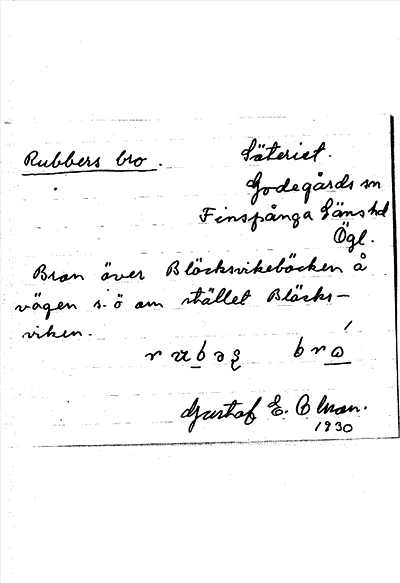 Rubbers bro.
Säteriet.
Godegårds sn
Finspånga läns hd
Ögl.
Bron över Bläcksvikebäcken å
vägen s.ö om stället Bläcks-
viken.
bro
Gustaf E. Olson.
1930